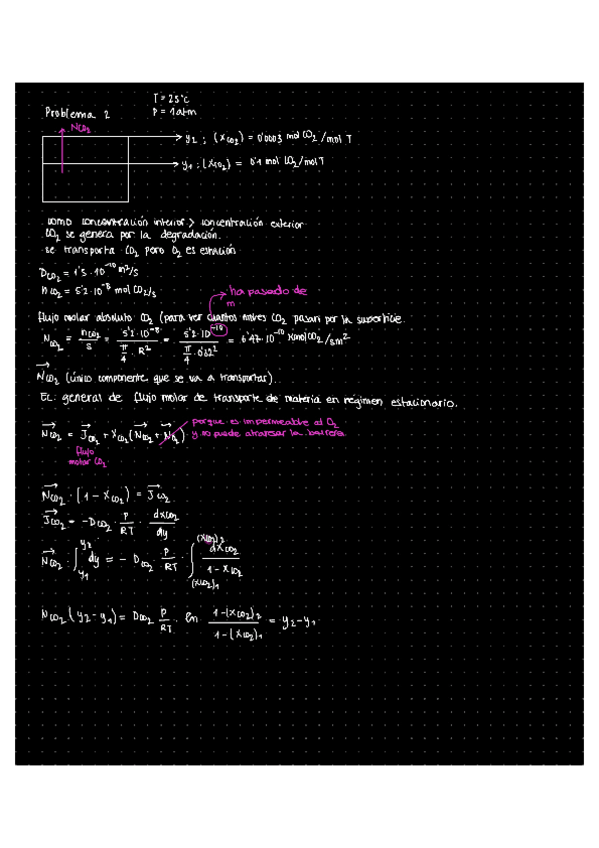 T = 25°C
Problema 2 P = 1 atm
NCO₂
y₂ ; (XCO₂) = 0'0003 mol CO₂ / mol T
y₁ ; (XCO₂) = 0'1 mol CO₂/mol T
como concentración interior > concentración exterior
CO₂ se genera por la degradación.
se transporta CO₂ pero O₂ es estación
DCO₂ = 1'5 · 10⁻¹⁰ m²/s
nCO₂ = 5'2 · 10⁻⁸ mol CO₂/s
ha pasado de
m
flujo molar absoluto CO₂ (para ver cuantos moles CO₂ pasan por la superficie.
NCO₂ = nCO₂/S = 5'2·10⁻⁸ / (π/4 · R²) = 5'2·10⁻¹⁰ / (π/4 · 0'02²) = 6'47 · 10⁻¹⁰ Kmol CO₂/sm²
NCO₂ (único componente que se va a transportar).
EC: general de flujo molar de transporte de materia en régimen estacionario.
porque es impermeable al O₂
NCO₂ = JCO₂ + XCO₂ (NCO₂ + NO₂) y no puede atravesar la barrera
flujo
molar CO₂
NCO₂ · (1 - XCO₂) = JCO₂
JCO₂ = - DCO₂ · P/RT · dXCO₂/dy
NCO₂ · ∫_y₁^y₂ dy = - DCO₂ · P/RT · ∫_(XCO₂)₁^(XCO₂)₂ dXCO₂/(1 - XCO₂)
NCO₂ (y₂-y₁) = DCO₂ P/RT · ln (1-(XCO₂)₂)/(1-(XCO₂)₁) = y₂-y₁